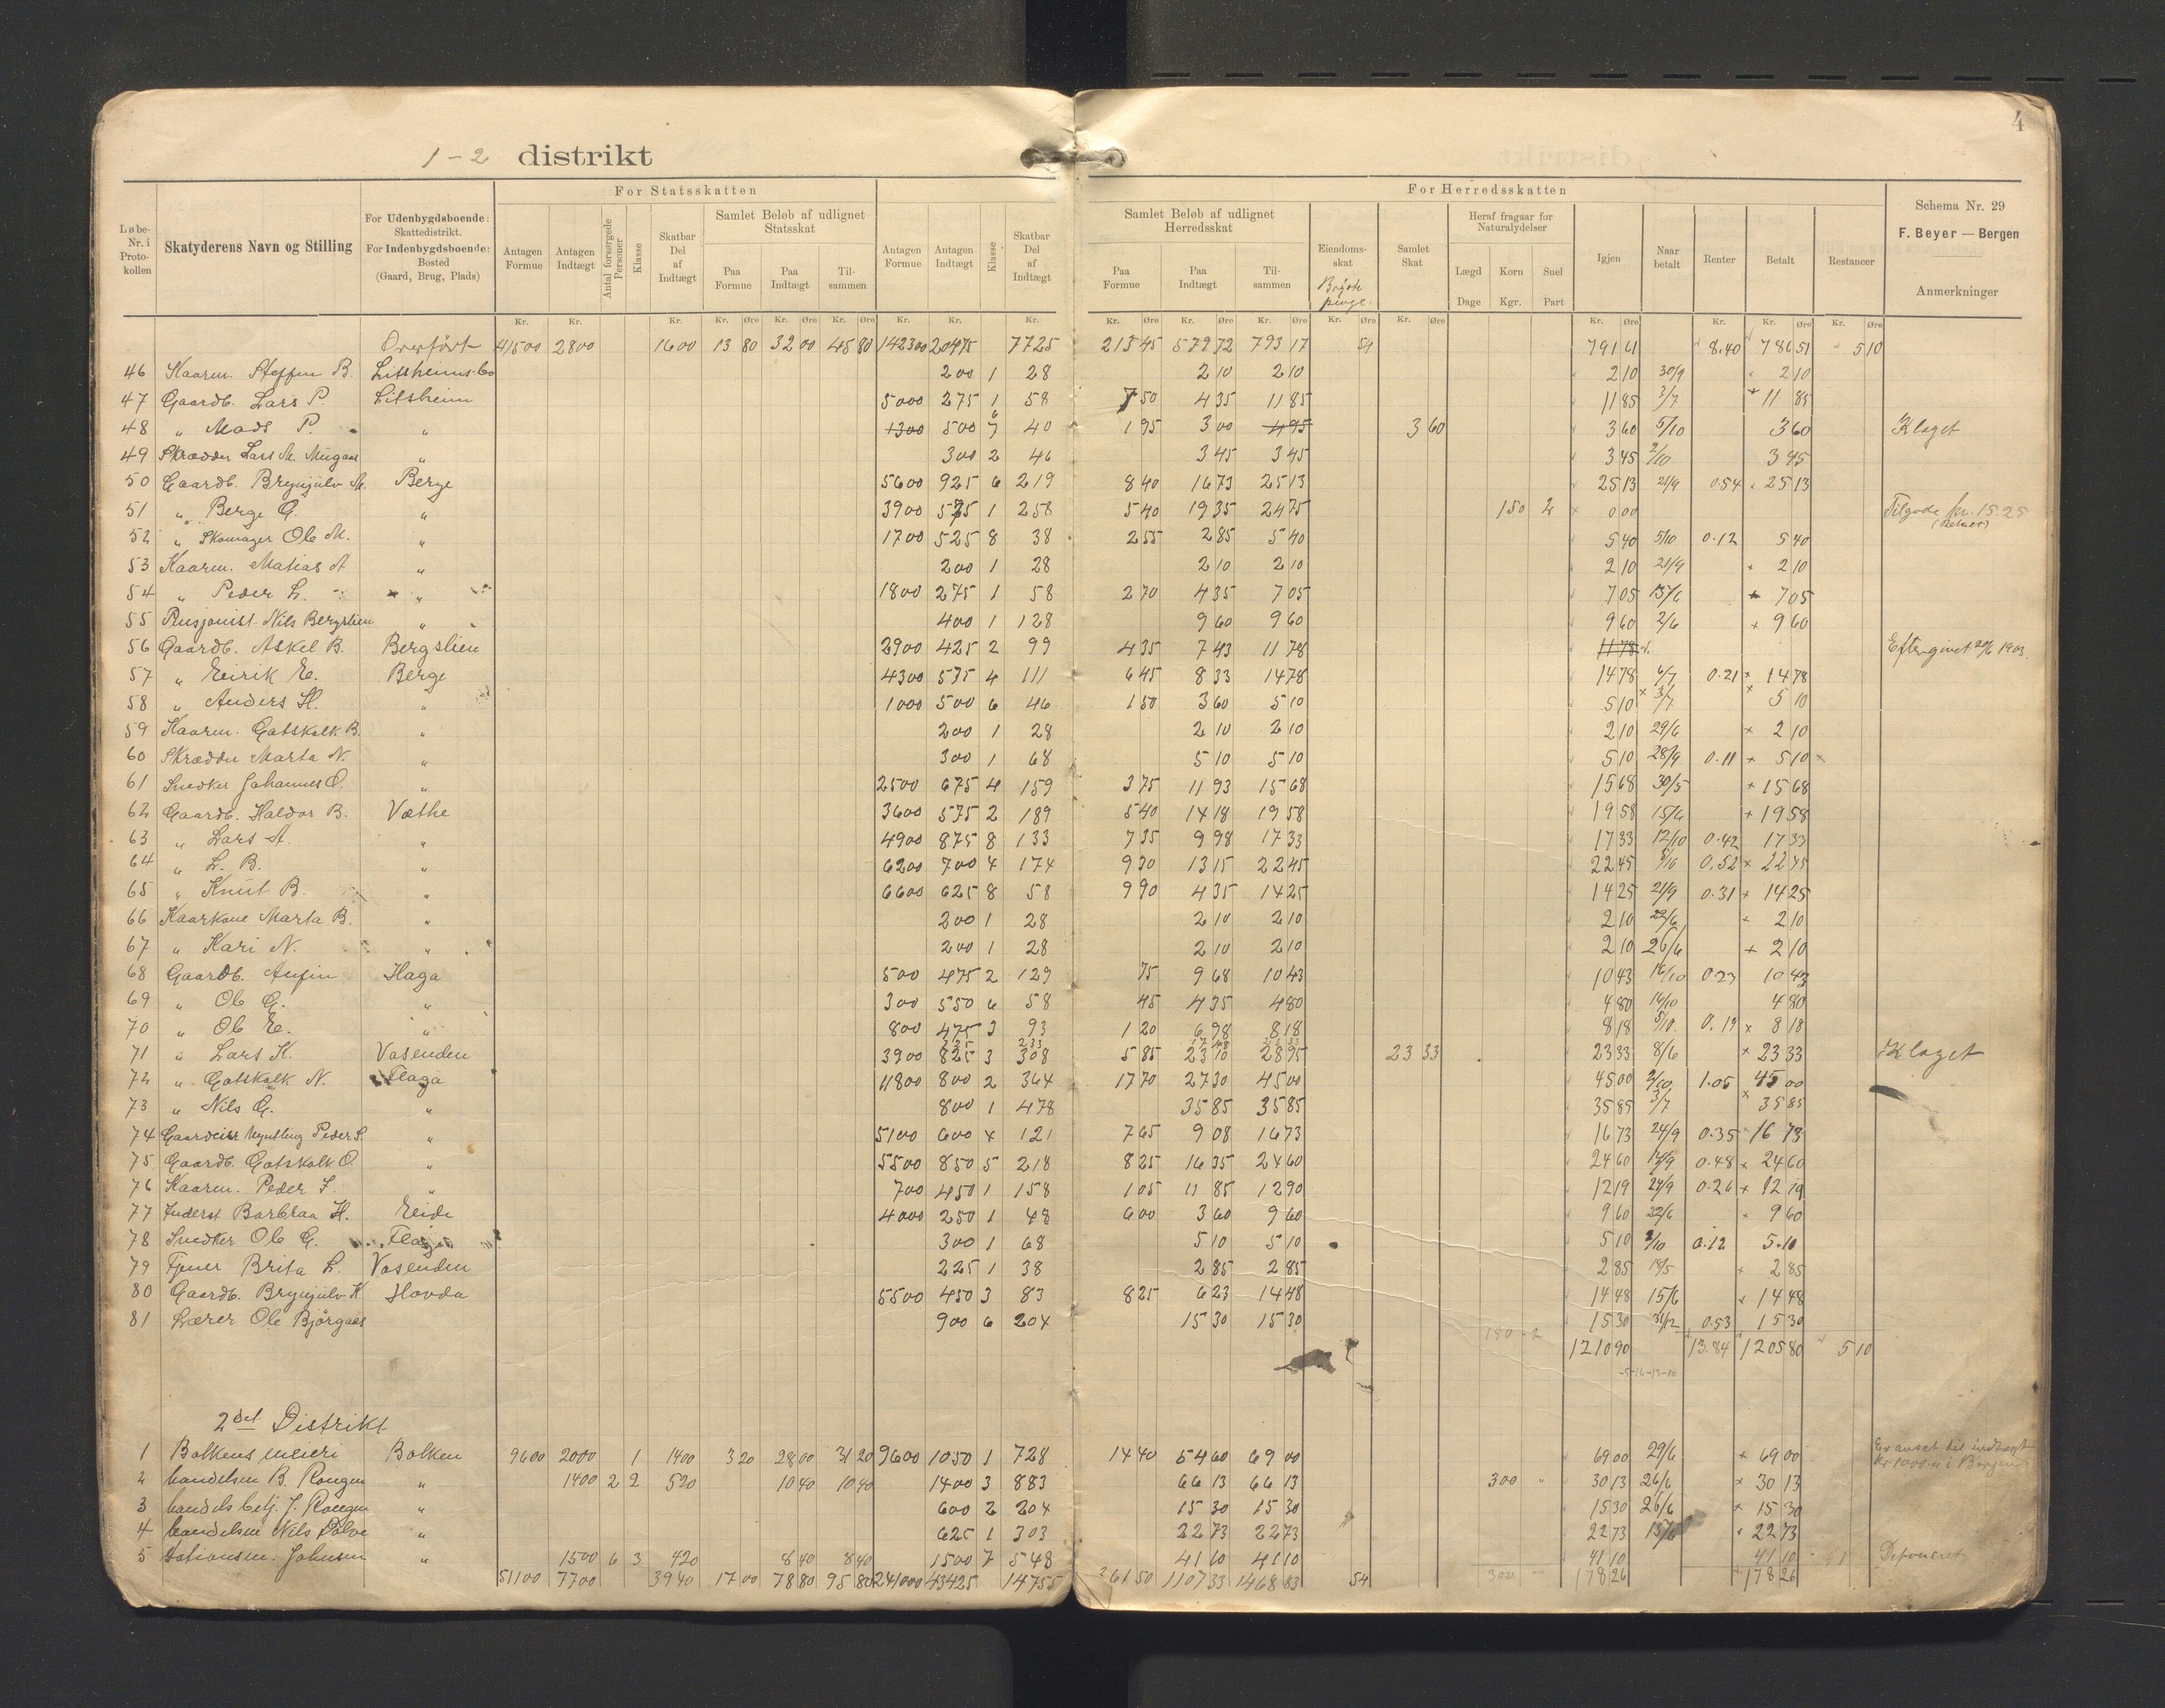 4
1-2 distrikt
For Statsskatten
For Herredsskatten
Løbe-Nr. i Protokollen
Skatyderens Navn og Stilling
For Udenbygdsboende: Skattedistrikt. For Indenbygdsboende: Bosted (Gaard, Brug, Plads)
Antagen Formue
Antagen Indtægt
Antal forsørgede Personer
Klasse
Skatbar Del af Indtægt
Samlet Beløb af udlignet Statsskat
Paa Formue
Paa Indtægt
Tilsammen
Antagen Formue
Antagen Indtægt
Klasse
Skatbar Del af Indtægt
Samlet Beløb af udlignet Herredsskat
Paa Formue
Paa Indtægt
Tilsammen
Eiendomsskat
Samlet Skat
Heraf fragaar for Naturalydelser
Lægd Dage
Korn Kgr.
Suel Part
Igjen
Naar betalt
Renter
Betalt
Restancer
Schema Nr. 29
F. Beyer — Bergen
Anmerkninger
Overført 41500 2800 1600 13 80 32 00 45 80 142300 20475 7725 213 45 579 72 793 17 54 791 61 8.40 786 51 5 10
46 Kaarm. Steffen B. 200 1 28 2 10 2 10 2 10 30/9 2 10
47 Gaardb. Lars P. Litsheim 5000 275 1 58 7 50 4 35 11 85 11 85 3/7 11 85
48 " Mads P. " 1300 500 7 40 1 95 3 00 4 95 3 60 3 60 5/10 3 60 Klaget
49 Skrædder Lars M. " 300 2 46 3 45 3 45 3 45 2/10 3 45
50 Gaardb. Brynjulv M. Berge 5600 925 6 219 8 40 16 73 25 13 25 13 21/9 0.54 25 13
51 " Berge G. " 3900 575 1 258 5 40 19 35 24 75 150 2 0 00 Tilgode kr. 15.25
52 " Skomager Ole M. " 1700 525 8 38 2 55 2 85 5 40 5 40 5/10 0.12 5 40
53 Kaarm. Matias A " 200 1 28 2 10 2 10 2 10 21/9 2 10
54 " Peder L. " 1800 275 1 58 2 70 4 35 7 05 7 05 15/6 7 05
55 Pensjonist Nils Bergslien " 400 1 128 9 60 9 60 9 60 2/6 9 60
56 Gaardb. Askel B. Bergslien 2900 425 2 99 4 35 7 43 11 78 11 78 Eftergivet 20/6 1903.
57 " Eirik E. Berge 4300 575 4 111 6 45 8 33 14 78 14 78 6/7 0.21 14 78
58 " Anders H. " 1000 500 6 46 1 50 3 60 5 10 5 10 3/7 5 10
59 Kaarm. Gotskalk B. " 200 1 28 2 10 2 10 2 10 29/6 2 10
60 Skrædder Marta N. " 300 1 68 5 10 5 10 5 10 28/9 0.11 5 10
61 Snedker Johannes O. " 2500 675 4 159 3 75 11 93 15 68 15 68 30/5 15 68
62 Gaardb. Haldor B. Væthe 3600 575 2 189 5 40 14 18 19 58 19 58 15/6 19 58
63 " Lars A. " 4900 875 8 133 7 35 9 98 17 33 17 33 12/10 0.42 17 33
64 " L. B. " 6200 700 4 174 9 30 13 15 22 45 22 45 5/10 0.52 22 45
65 " Knut B. " 6600 625 8 58 9 90 4 35 14 25 14 25 21/9 0.31 14 25
66 Kaarkone Marta B. " 200 1 28 2 10 2 10 2 10 22/6 2 10
67 " Kari N. " 200 1 28 2 10 2 10 2 10 26/6 2 10
68 Gaardb. Anfin Flaga 500 475 2 129 75 9 68 10 43 10 43 16/10 0.23 10 43
69 " Ole G. " 300 550 6 58 45 4 35 4 80 4 80 16/10 4 80
70 " Ole E. " 800 475 3 93 1 20 6 98 8 18 8 18 5/10 0.19 8 18
71 " Lars K. Vasenden 3900 825 3 308 5 85 23 10 28 95 23 33 23 33 8/6 23 33 Klaget
72 " Gotskalk N. Flaga 11800 800 2 364 17 70 27 30 45 00 45 00 2/10 1.05 45 00
73 " Nils G. " 800 1 478 35 85 35 85 35 85 3/7 35 85
74 Peder S. " 5100 600 4 121 7 65 9 08 16 73 16 73 24/9 0.35 16 73
75 Gaardb. Gotskalk O. " 5500 850 5 218 8 25 16 35 24 60 24 60 14/9 0.48 24 60
76 Kaarm. Peder J. " 700 450 1 158 1 05 11 85 12 90 12 19 24/9 0.26 12 19
77 Inderst Barbraa H. Eide 4000 250 1 48 6 00 3 60 9 60 9 60 22/6 9 60
78 Snedker Ole G. Flaga 300 1 68 5 10 5 10 5 10 2/10 0.12 5.10
79 Tjener Brita L. Vasenden 225 1 38 2 85 2 85 2 85 18/5 2 85
80 Gaardb. Brynjulv K Hovda 5500 450 3 83 8 25 6 23 14 48 14 48 15/6 14 48
81 Lærer Ole Bjørgaas 900 6 204 15 30 15 30 15 30 31/12 0.53 15 30
150 - 2 1210 90 13.84 1205 80 5 10
2det Distrikt
1 Bolkens meieri Bolken 9600 2000 1 1400 3 20 28 00 31 20 9600 1050 1 728 14 40 54 60 69 00 69 00 29/6 69 00
2 handelsm B. Rongen " 1400 2 2 520 10 40 10 40 1400 3 883 66 13 66 13 300 " 30 13 26/6 30 13
3 handelsbetj. J. Rongen " 600 2 204 15 30 15 30 15 30 26/6 15 30
4 handelsm Nils Dolve " 625 1 303 22 73 22 73 22 73 15/6 22 73
5 Stationsm. Johnsen " 1500 6 3 420 8 40 8 40 1500 7 548 41 10 41 10 41 10 41 10 Deponeret
51100 7700 3940 17 00 78 80 95 80 241000 43425 14755 361 50 1107 33 1468 83 54 300 178 26 178 26